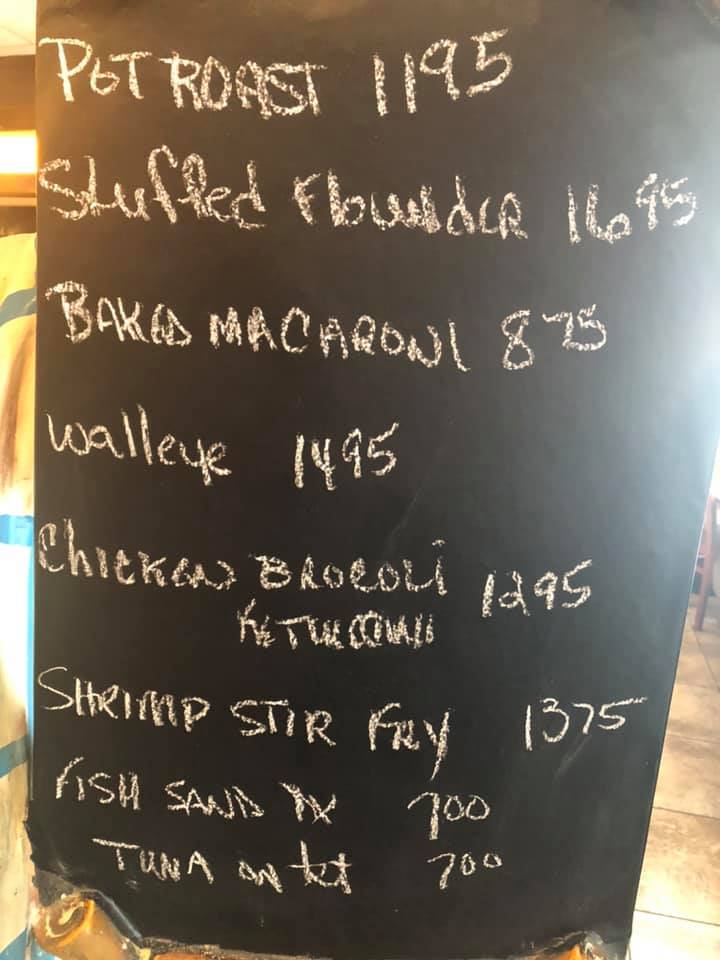 POT ROAST 1195
Stuffed Flounder 1695
BAKED MACARONI 875
Walleye 1495
CHICKEN BROCOLI 1295
SHRIMP STIR FRY 1375
FISH SAND 700
TUNA ON 700